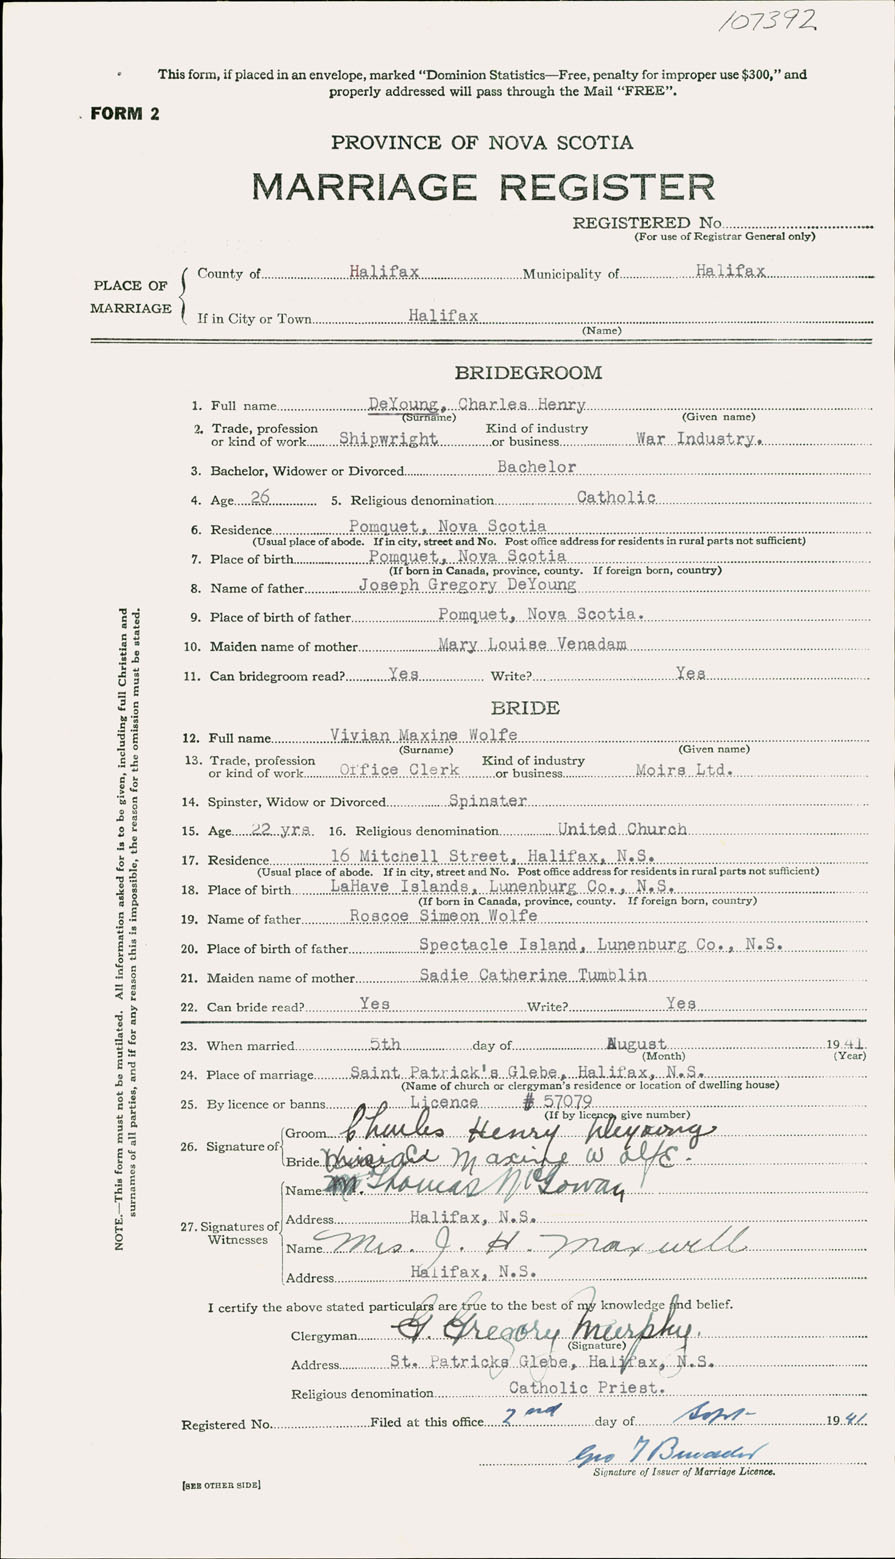 107392
This form, if placed in an envelope, marked "Dominion Statistics—Free, penalty for improper use $300," and
properly addressed will pass through the Mail "FREE".
FORM 2
PROVINCE OF NOVA SCOTIA
MARRIAGE REGISTER
REGISTERED No.
(For use of Registrar General only)
PLACE OF MARRIAGE
County of Halifax Municipality of Halifax
If in City or Town Halifax
(Name)
BRIDEGROOM
1. Full name DeYoung, Charles Henry
(Surname) (Given name)
2. Trade, profession Kind of industry
or kind of work Shipwright or business War Industry.
3. Bachelor, Widower or Divorced Bachelor
4. Age 26 5. Religious denomination Catholic
6. Residence Pomquet, Nova Scotia
(Usual place of abode. If in city, street and No. Post office address for residents in rural parts not sufficient)
7. Place of birth Pomquet, Nova Scotia
(If born in Canada, province, county. If foreign born, country)
8. Name of father Joseph Gregory DeYoung
9. Place of birth of father Pomquet, Nova Scotia.
10. Maiden name of mother Mary Louise Venadam
11. Can bridegroom read? Yes Write? Yes
BRIDE
12. Full name Vivian Maxine Wolfe
(Surname) (Given name)
13. Trade, profession Kind of industry
or kind of work Office Clerk or business Moirs Ltd.
14. Spinster, Widow or Divorced Spinster
15. Age 22 yrs. 16. Religious denomination United Church
17. Residence 16 Mitchell Street, Halifax, N.S.
(Usual place of abode. If in city, street and No. Post office address for residents in rural parts not sufficient)
18. Place of birth LaHave Islands, Lunenburg Co., N.S.
(If born in Canada, province, county. If foreign born, country)
19. Name of father Roscoe Simeon Wolfe
20. Place of birth of father Spectacle Island, Lunenburg Co., N.S.
21. Maiden name of mother Sadie Catherine Tumblin
22. Can bride read? Yes Write? Yes
23. When married 5th day of August 1941
(Month) (Year)
24. Place of marriage Saint Patrick's Glebe, Halifax, N.S.
(Name of church or clergyman's residence or location of dwelling house)
25. By licence or banns Licence # 57079
(If by licence, give number)
26. Signature of
Groom Charles Henry Deyoung
Bride Maxine Wolfe.
27. Signatures of Witnesses
Name Thomas McGowan
Address Halifax, N.S.
Name Mrs. J. H. Maxwell
Address Halifax, N.S.
I certify the above stated particulars are true to the best of my knowledge and belief.
Clergyman G. Gregory Murphy.
(Signature)
Address St. Patricks Glebe, Halifax, N.S.
Religious denomination Catholic Priest.
Registered No. Filed at this office 2nd day of Sept 1941
Geo
Signature of Issuer of Marriage Licence.
[SEE OTHER SIDE]
NOTE.—This form must not be mutilated. All information asked for is to be given, including full Christian and
surnames of all parties, and if for any reason this is impossible, the reason for the omission must be stated.